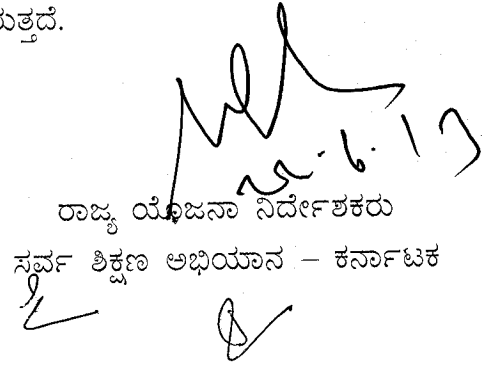 ರುತ್ತದೆ.
ರಾಜ್ಯ ಯೋಜನಾ ನಿರ್ದೇಶಕರು
ಸರ್ವ ಶಿಕ್ಷಣ ಅಭಿಯಾನ – ಕರ್ನಾಟಕ